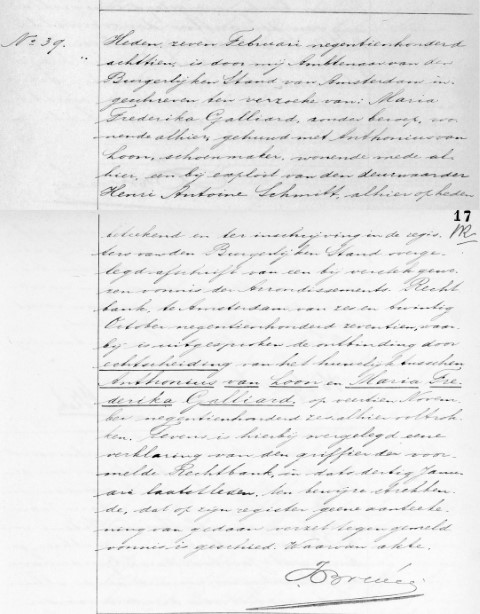 No 39.
Heden, zeven Februari negentienhonderd
achttien, is door mij Ambtenaar van den
Burgerlijken Stand van Amsterdam in-
geschreven ten verzoeke van: Maria
Frederika Galliard, zonder beroep, wo-
nende alhier, gehuwd met Anthonius van
Loon, schoenmaker, wonende mede al-
hier, een bij exploit van den deurwaarder
Henri Antoine Schmitt, alhier op heden
17
beteekend en ter inschrijving in de regis-
ters van den Burgerlijken Stand overge-
legd afschrift van een bij verstek gewe-
zen vonnis der Arrondissements-Recht-
bank, te Amsterdam van zes en twintig
October negentienhonderd zeventien, waar-
bij is uitgesproken de ontbinding door
echtscheiding van het huwelijk tusschen
Anthonius van Loon en Maria Fre-
derika Galliard, op veertien Novem-
ber negentienhonderd zes alhier voltrok-
ken. Tevens is hierbij overgelegd eene
verklaring van den griffier der voor-
melde Rechtbank, in dato dertig Janu-
ari laatstleden, ten bewijze strekken-
de, dat op zijn register geene aanteeke-
ning van gedaan verzet tegen gemeld
vonnis is geschied. Waarvan akte.